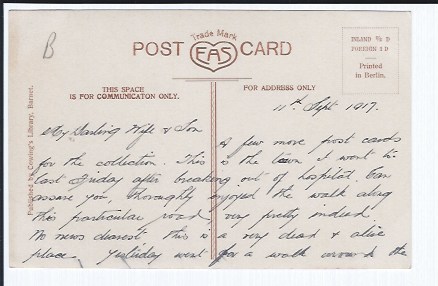 B
Trade Mark
POST FAS CARD
INLAND ½ D
FOREIGN 1 D
Printed
in Berlin.
THIS SPACE
IS FOR COMMUNICATON ONLY.
FOR ADDRESS ONLY
Published by Cowing's Library, Barnet.
11th Sept 1917.
My Darling Wife & Son
A few more post cards
for the collection. This is the town I went to
last Friday after breaking out of hospital. Can
assure you, thoroughly enjoyed the walk along
this particular road, very pretty indeed.
No news dearest this is a very dead & alive
place. Yesterday went for a walk round the